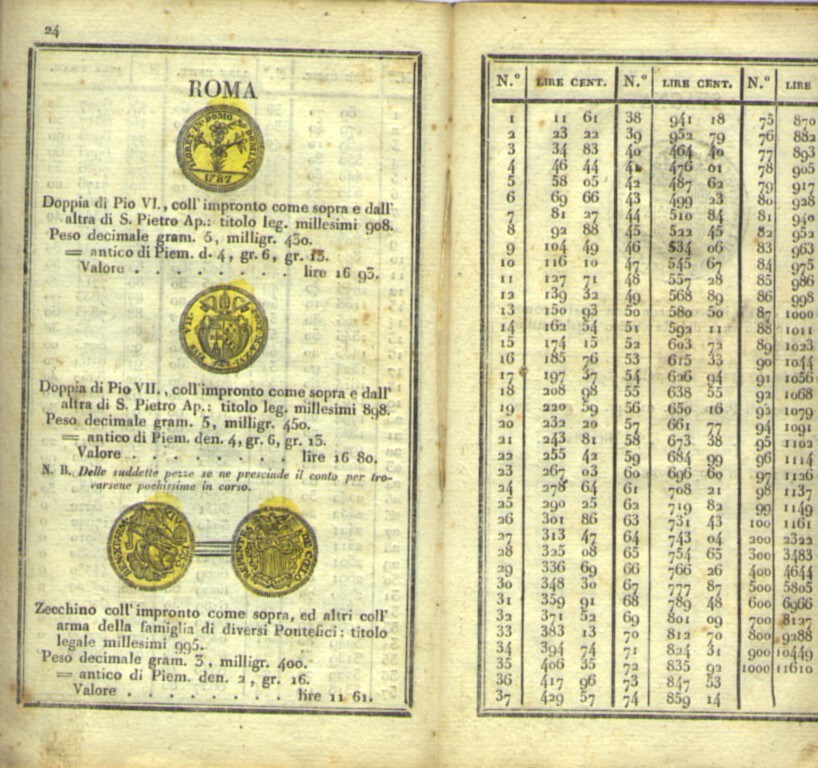 24
ROMA
1787
Doppia di Pio VI., coll' impronto come sopra e dall'
altra di S. Pietro Ap.: titolo leg. millesimi 908.
Peso decimale gram. 5, milligr. 450.
= antico di Piem. d. 4, gr. 6, gr. 13.
Valore . . . . . . . . lire 16 93.
Doppia di Pio VII., coll' impronto come sopra e dall'
altra di S. Pietro Ap.: titolo leg. millesimi 898.
Peso decimale gram. 5, milligr. 450.
= antico di Piem. den. 4, gr. 6, gr. 13.
Valore . . . . . . . . lire 16 80.
N. B. Delle suddette pezze se ne prescinde il conto per tro-
varsene pochissime in corso.
Zecchino coll' impronto come sopra, ed altri coll'
arma della famiglia di diversi Pontefici: titolo
legale millesimi 995.
Peso decimale gram. 3, milligr. 400.
= antico di Piem. den. 2, gr. 16.
Valore . . . . . . . . lire 11 61.
N.º LIRE CENT. N.º LIRE CENT. N.º LIRE
1 11 61 38 941 18 75 870
2 23 22 39 952 79 76 882
3 34 83 40 464 40 77 893
4 46 44 41 476 01 78 905
5 58 05 42 487 62 79 917
6 69 66 43 499 23 80 928
7 81 27 44 510 84 81 940
8 92 88 45 522 45 82 952
9 104 49 46 534 06 83 963
10 116 10 47 545 67 84 975
11 127 71 48 557 28 85 986
12 139 32 49 568 89 86 998
13 150 93 50 580 50 87 1000
14 162 54 51 592 11 88 1011
15 174 15 52 603 72 89 1023
16 185 76 53 615 33 90 1044
17 197 37 54 626 94 91 1056
18 208 98 55 638 55 92 1068
19 220 59 56 650 16 93 1079
20 232 20 57 661 77 94 1091
21 243 81 58 673 38 95 1102
22 255 42 59 684 99 96 1114
23 267 03 60 696 60 97 1126
24 278 64 61 708 21 98 1137
25 290 25 62 719 82 99 1149
26 301 86 63 731 43 100 1161
27 313 47 64 743 04 200 2322
28 325 08 65 754 65 300 3483
29 336 69 66 766 26 400 4644
30 348 30 67 777 87 500 5805
31 359 91 68 789 48 600 6966
32 371 52 69 801 09 700 8127
33 383 13 70 812 70 800 9288
34 394 74 71 824 31 900 10449
35 406 35 72 835 92 1000 11610
36 417 96 73 847 53
37 429 57 74 859 14